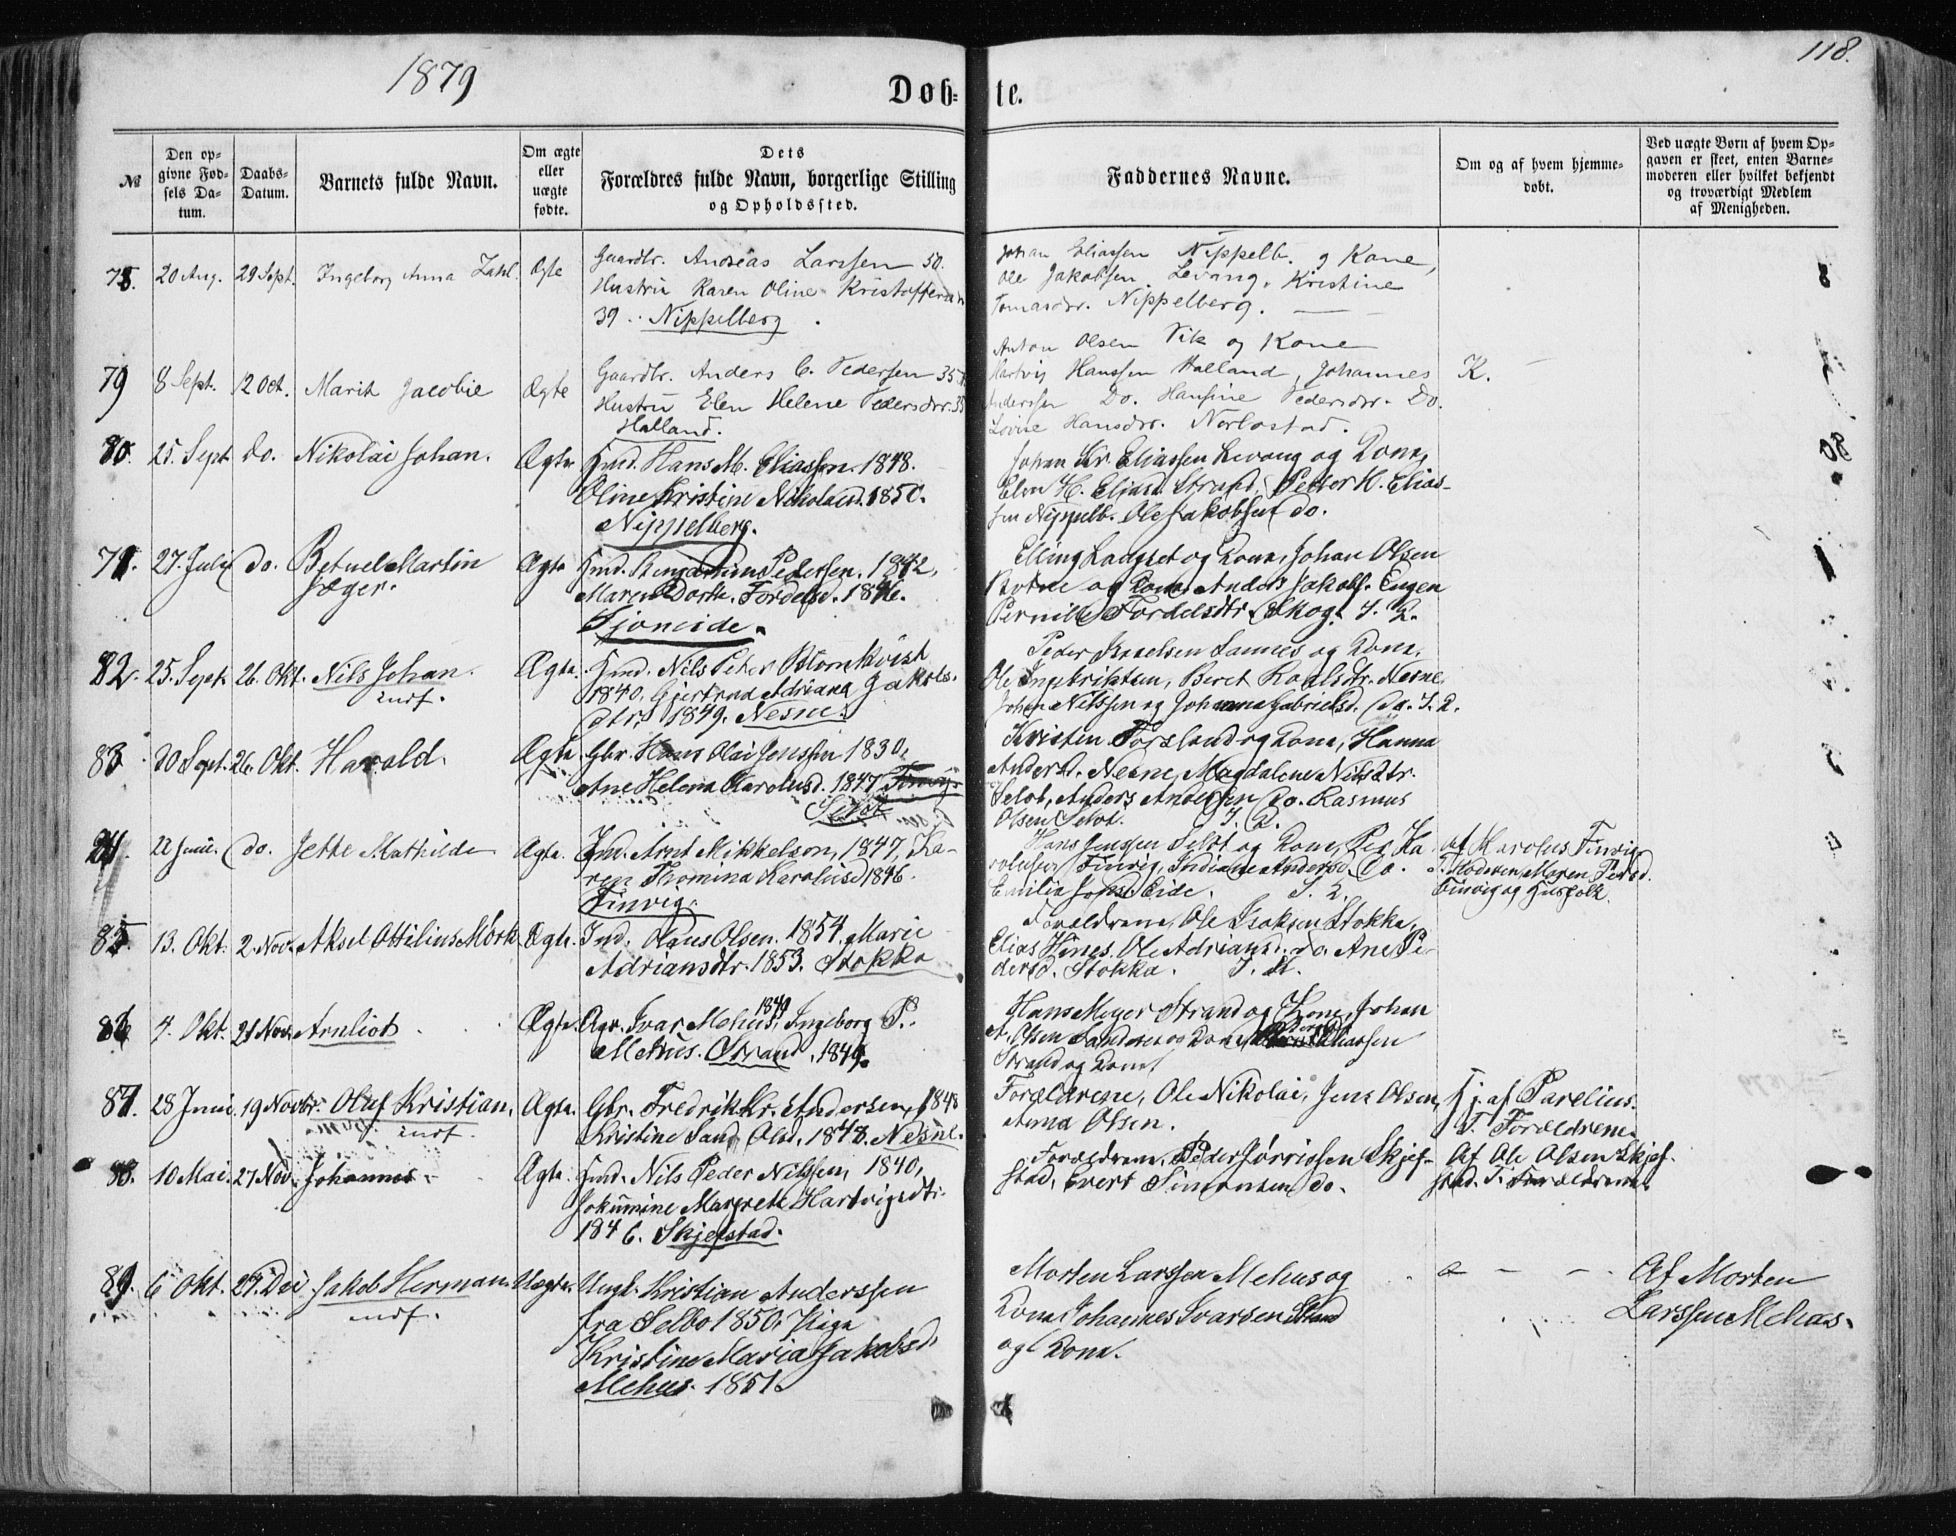 1879
118.
Døb-
te.
№
Den op-
givne Fød-
sels Da-
tum.
Daabs-
Datum.
Barnets fulde Navn.
Om ægte
eller
uægte
fødte.
Dets
Forældres fulde Navn, borgerlige Stilling
og Opholdssted.
Faddernes Navne.
Om og af hvem hjemme-
døbt.
Ved uægte Børn af hvem Op-
gaven er skeet, enten Barne-
moderen eller hvilket bekjendt
og troværdigt Medlem
af Menigheden.
78. 20 Aug. 29 Sept. Ingeborg Anna Zahl. Ægte
Gaardbr. Andreas Larssen 50.
Hustru Karen Oline
39 Nippelberg.
Johan Eliassen Nippelb. og Kone,
Ole Jakobsen Levang. Kristine
Tomasdr. Nippelberg.
79 8 Sept. 12 Oct. Marit Jacobie Ægte
Gaardbr. Anders C. Pedersen 35
Hustru Elen Helene Pedersdr. 35
Halland.
Anton Olsen Vik og Kone
Hartvig Hanssen Halland, Johannes
Anderssen Do. Hansine Pedersdr. Do.
Lovise Hansdr.
K.
80. 25. Sept do. Nikolai Johan. Ægte
Hmd. Hans M. Eliassen. 1848.
Oline Kristine Nikolaisd. 1850.
Nippelberg.
Johan Kr. Eliassen Levang og Kone,
Elen H. Eliasd. Strand, Petter K. Elias-
sen Nippelb. Ole Jakobsen do.
27. Juli do. Betuel Martin
Jæger. Ægte
Hmd. Benjamin Pedersen. 1842,
Maren Dorte. Fordelsd. 1846.
Sjoneide.
Elling Langset og Kone, Johan Olsen
og Kone, Anders Jakobs. Engen
Pernille Fordelsdtr. Skog.
82. 25. Sept. 26. Okt. Nils Johan.
indf.
Ægte.
Hmd. Nils Peter Blomkvist
1840, Gjertrud Adriana Jakobs-
dtr. 1849. Nesne.
Peder Israelsen Sannes og Kone,
Ole Ingebrigtsen, Beret Nesne,
Johan Nilssen og Johanna Gabrielsd. do.
83 30 Sept. 26. Okt. Harald. Ægte
Gbr. Hans Olai Jenssen 1830,
Ane Helena Karolusd. 1847
Selot
Kristen Forsland og Kone, Hanna
Andersd. Nesne, Magdalene Nilsdtr.
Selot, Anders Andersen do. Rasmus
Olsen Selot.
84. 22 Juni. do. Jette Mathilde Ægte.
Ind. Arnt Mikkelsen, 1847, Ka-
ren Thomina Karolusd 1846.
Finvig.
Hans Jenssen Selot og Kone, Per Ka-
rolusen Finvig, Indiane Andersd. do.
Emilie Eide.
af Karolus Finvig
T. Moderen Maren Persd.
Finvig og Husfolk.
85. 13. Okt. 2. Nov. Aksel Ottilius Mørk Ægte.
Ind. Olaus Olsen. 1854, Marie
Adriansdtr. 1853. Stokka
Forældrene, Ole Isaksen Stokka,
Elias Hines. Ole Adrians. do. Ane Pe-
dersd. Stokka.
86 4. Okt. 21 Nov. Arnliot Ægte.
Ivar Mehus, 1849 Ingeborg P.
Mehus. Strand, 1849.
Hans Meyer Strand og Kone, Johan
A. Olsen Sandnes og Kone
Strand og Kone
87. 28 Juni. 19 Novbr. Oluf Kristian.
indf.
Ægte.
Gbr. Fredrik Kr. Andersen, 1848
Kristine Sand Olsd, 1848. Nesne.
Forældrene, Ole Nikolai, Jens Olsen,
Anna Olsen.
Hj. af Parelius.
T. Forældrene.
88. 10 Mai. 27 Nov. Johannes. Ægte.
Hmd. Nils Peder Nilssen, 1840,
Jokumine Margrete Hartvigsdtr.
1846. Skjefstad.
Forældrene, Peder Jørrissen Skjef-
stad, Evert Simonsen do.
Af Ole Olsen Skjef-
stad. T. Forældrene.
89. 6 Okt. 27. Dec. Jakob Herman
indf.
Uægte.
Ungk. Kristian Anderssen
fra Selbo 1850, Piga
Kristine Maria Jakobsd.
Mehus. 1851.
Morten Larssen Mehus og
Kone Johannes Ivarsen Strand
og Kone.
Af Morten
Larssen Mehus.